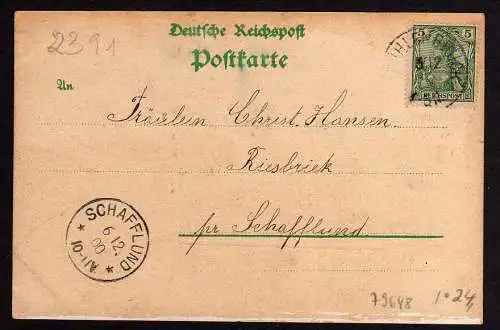 2391
Deutsche Reichspost
Postkarte
5 5
REICHSPOST
An
Fräulein Christ. Hansen.
Riesbriek
pr Schafflund
SCHAFFLUND
6/12.
00
* A11-10 *
79648
1.24